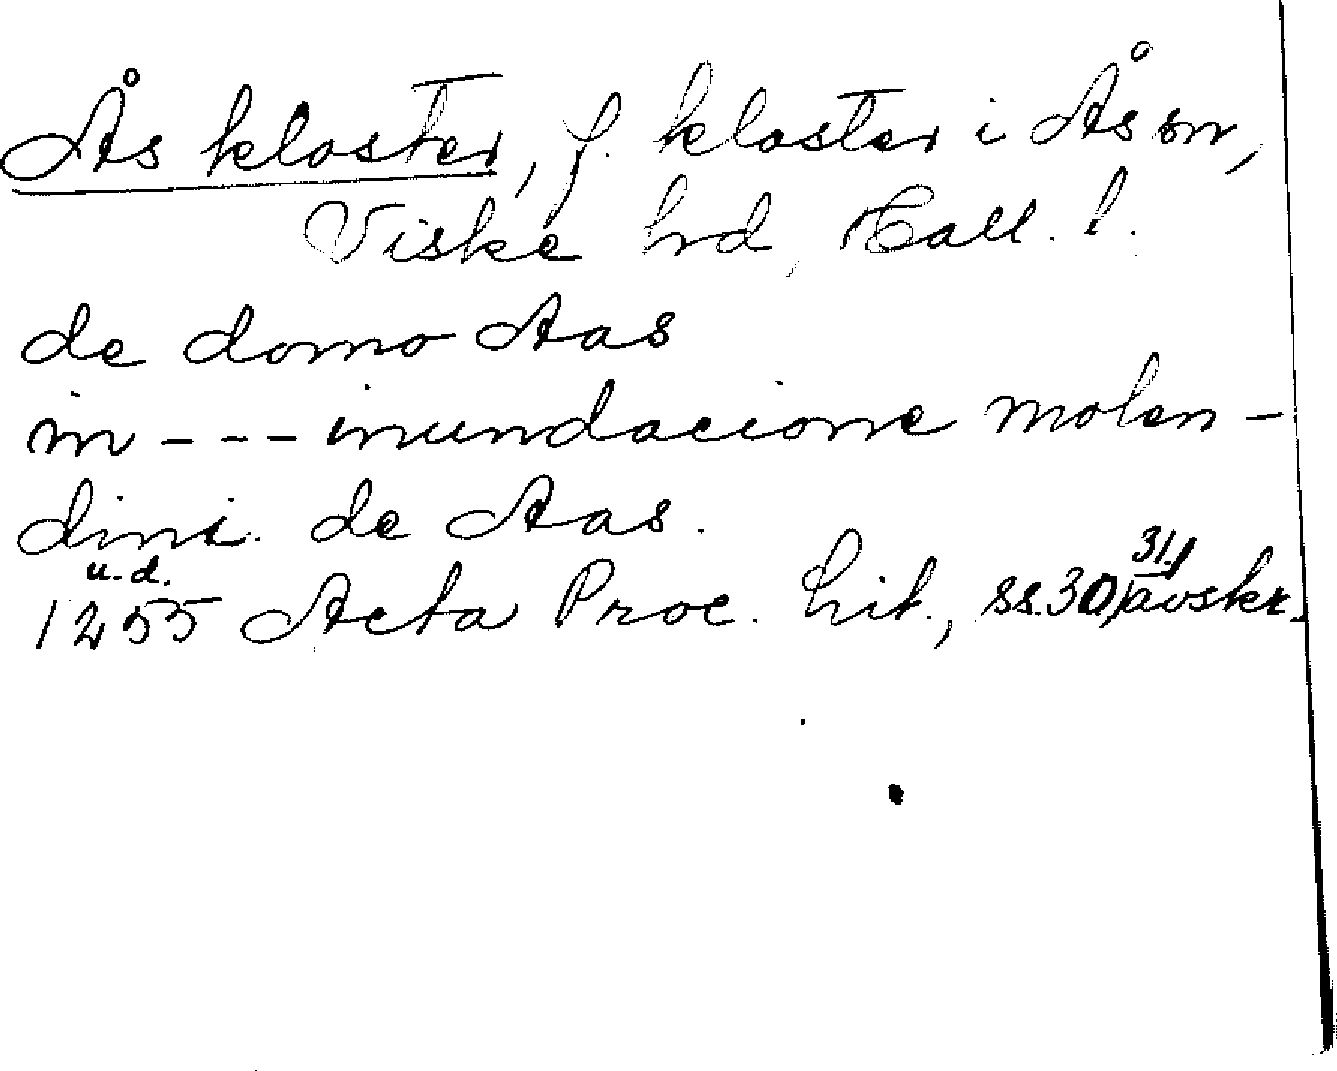 Ås kloster, f. kloster i Ås sn,
Viske hd, Hall. l.
de domo Aas
in - - - inundacione molen-
dini de Aas.
u.d.
1255 Acta Proc. Lit., ss. 30, 31, avskr.